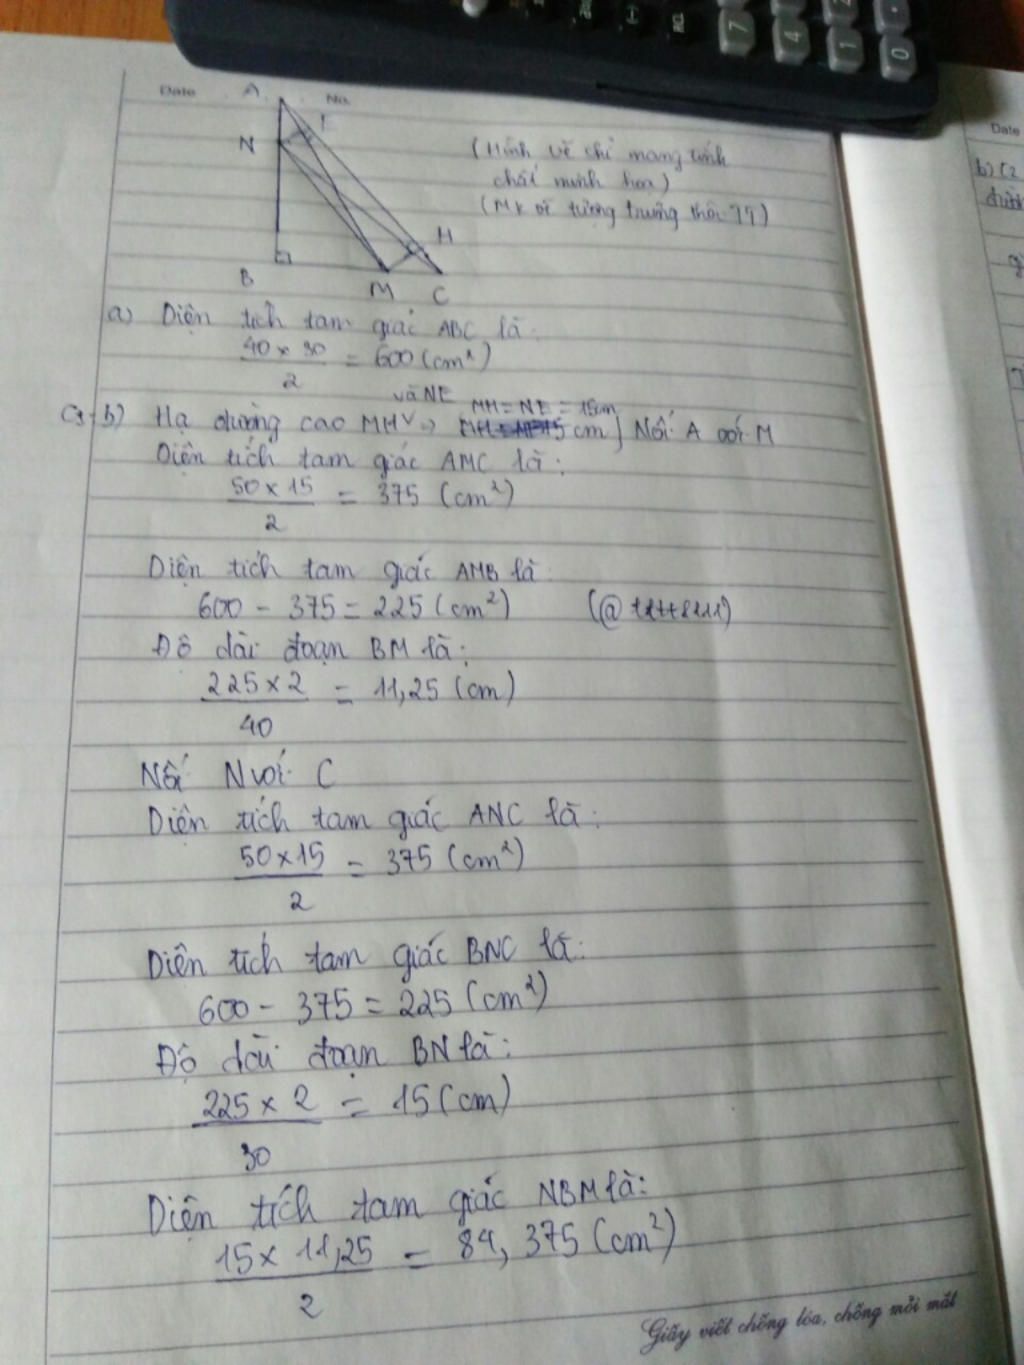 Date
No.
A
I
N
H
B
M
C
(Hình vẽ chỉ mang tính
chất minh họa)
a) Diện tích tam giác ABC là:
40 x 30 / 2 = 600 (cm²)
và NE
MH = NE = 15cm
b) Hạ đường cao MH cm Nối A với M
Diện tích tam giác AMC là:
50 x 15 / 2 = 375 (cm²)
Diện tích tam giác AMB là
600 - 375 = 225 (cm²)
Độ dài đoạn BM là:
225 x 2 / 40 = 11,25 (cm)
Nối N với C
Diện tích tam giác ANC là:
50 x 15 / 2 = 375 (cm²)
Diện tích tam giác BNC là:
600 - 375 = 225 (cm²)
Độ dài đoạn BN là:
225 x 2 / 30 = 15 (cm)
Diện tích tam giác NBM là:
15 x 11,25 / 2 = 84,375 (cm²)
Giấy viết chống lóa, chống mỏi mắt
Date
b)
7
4
1
0